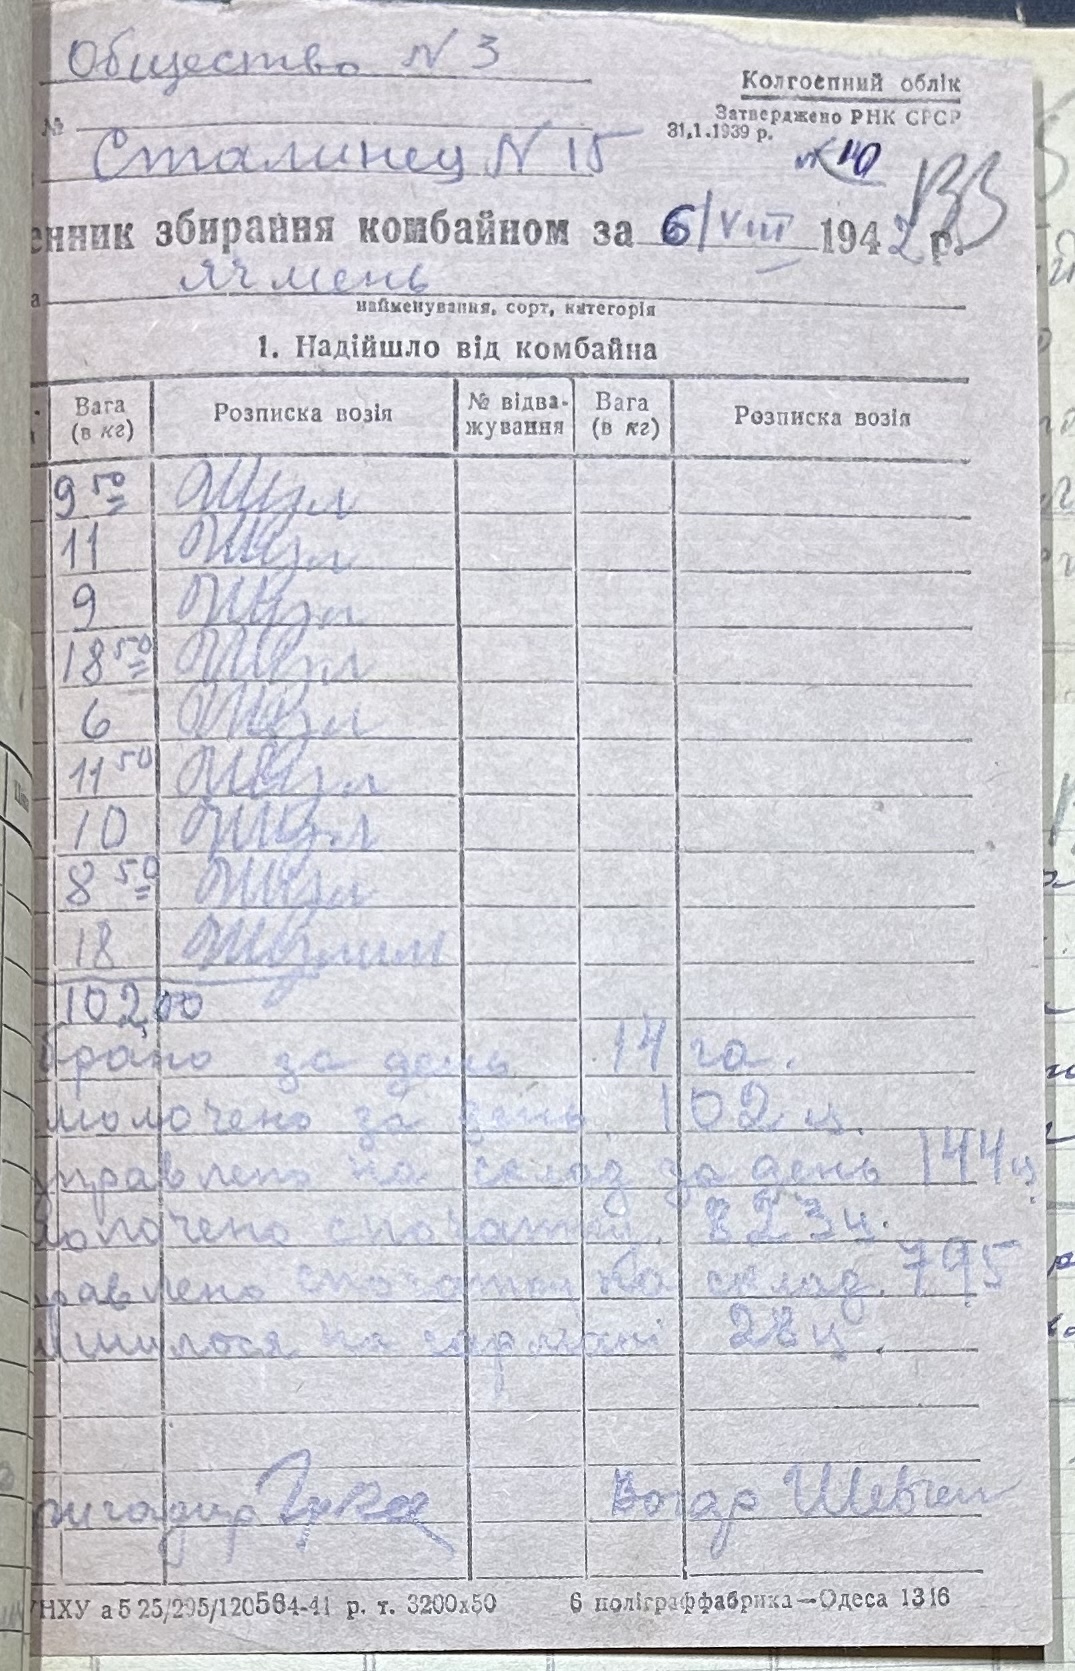 Общество N 3
Колгоспний облік
Затверджено РНК СРСР
31.1.1939 р.
№
Сталинец N 15
енник збирання комбайном за 6/VIII 1942 р.
ячмень
найменування, сорт, категорія
1. Надійшло від комбайна
Вага (в кг) Розписка возія № відва-жування Вага (в кг) Розписка возія
9 50
11
9
18 50
6
11 50
10
8 50
18
102,00
брано за день 14 га.
молочено за день 102 ц.
правлено на склад за день 144 ц
лочено спочатку 823 ц.
равлено спочатку на склад 795
лишилося на гармані 28 ц.
ригадир Вагар Шевчен
УНХУ а 5 25/295/120564-41 р. т. 3200х50 6 поліграффабрика—Одеса 1316